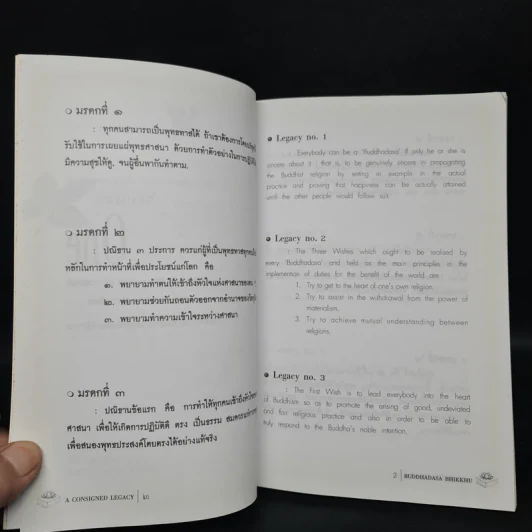 มรดกที่ ๑
: ทุกคนสามารถเป็นพุทธทาสได้ ถ้าเขาต้องการโดยบริสุทธิ์ใจ
รับใช้ในการเผยแผ่พุทธศาสนา ด้วยการทำตัวอย่างในการปฏิบัติ
มีความสุขให้ดู, จนผู้อื่นพากันทำตาม.
มรดกที่ ๒
: ปณิธาน ๓ ประการ ควรแก่ผู้ที่เป็นพุทธทาสทุกคน
หลักในการทำหน้าที่เพื่อประโยชน์แก่โลก คือ
๑. พยายามทำตนให้เข้าถึงหัวใจแห่งศาสนาของตน
๒. พยายามช่วยกันถอนตัวออกจากอำนาจของวัตถุ
๓. พยายามทำความเข้าใจระหว่างศาสนา
มรดกที่ ๓
: ปณิธานข้อแรก คือ การทำให้ทุกคนเข้าถึง
ศาสนา เพื่อให้เกิดการปฏิบัติดี ตรง เป็นธรรม สมควรแก่
เพื่อสนองพุทธประสงค์โดยตรงได้อย่างแท้จริง
A CONSIGNED LEGACY |
Legacy no. 1
: Everybody can be a 'Buddhadasa', if only he or she is
sincere about it : that is, to be genuinely sincere in propagating
the Buddhist religion by setting in example in the actual
practice and proving that happiness can be actually attained
until the other people would follow suit.
Legacy no. 2
: The Three Wishes which ought to be realised by
every 'Buddhadasa' and held as the main principles in the
implementation of duties for the benefit of the world are :
1. Try to get to the heart of one's own religion.
2. Try to assist in the withdrawal from the power of
materialism.
3. Try to achieve mutual understanding between
religions.
Legacy no. 3
: The First Wish is to lead everybody into the heart
of Buddhism so as to promote the arising of good, undeviated
and fair religious practice and also in order to be able to
truly respond to the Buddha's noble intention.
2 | BUDDHADASA BHIKKHU